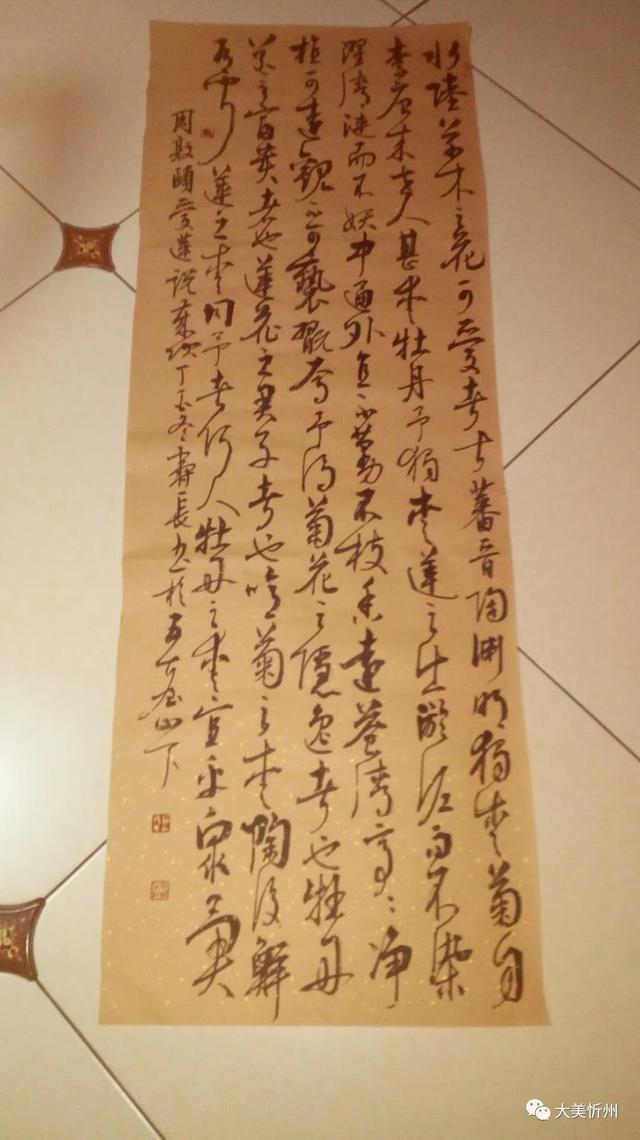 水陸草木之花可愛者甚蕃晋陶渊明獨愛菊自
李唐来世人甚愛牡丹予獨愛蓮之出淤泥而不染
濯清涟而不妖中通外直不蔓不枝香遠益清亭々净
植可遠觀不可褻翫焉予谓菊花之隱逸者也牡丹
花之富貴者也蓮花之君子者也噫菊之愛陶後鮮
有聞蓮之愛同予者何人牡丹之愛宜乎衆矣
周敦頤愛蓮説丁酉冬壽長书於五台山下
大美忻州